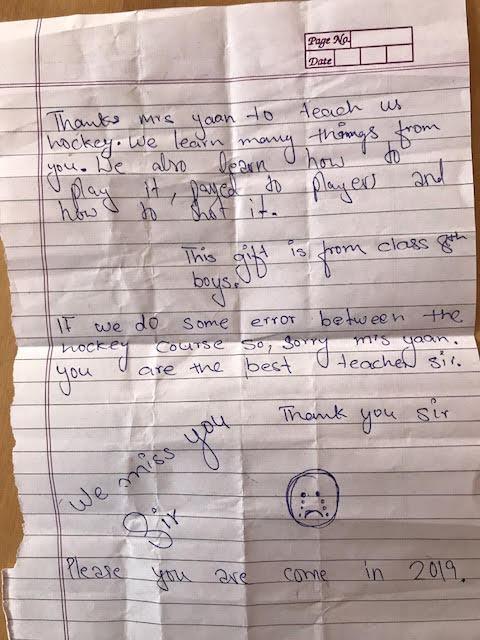 Page No.
Date
Thanks mrs yaan to teach us
hockey. We learn many things from
you. We also learn how to
play it, passed to players and
how to shot it.
This gift is from class 8th
boys.
IF we do some error between the
hockey course so, sorry mrs yaan.
you are the best teacher sir.
Thank you Sir
We miss you
Sir
Please you are come in 2019.